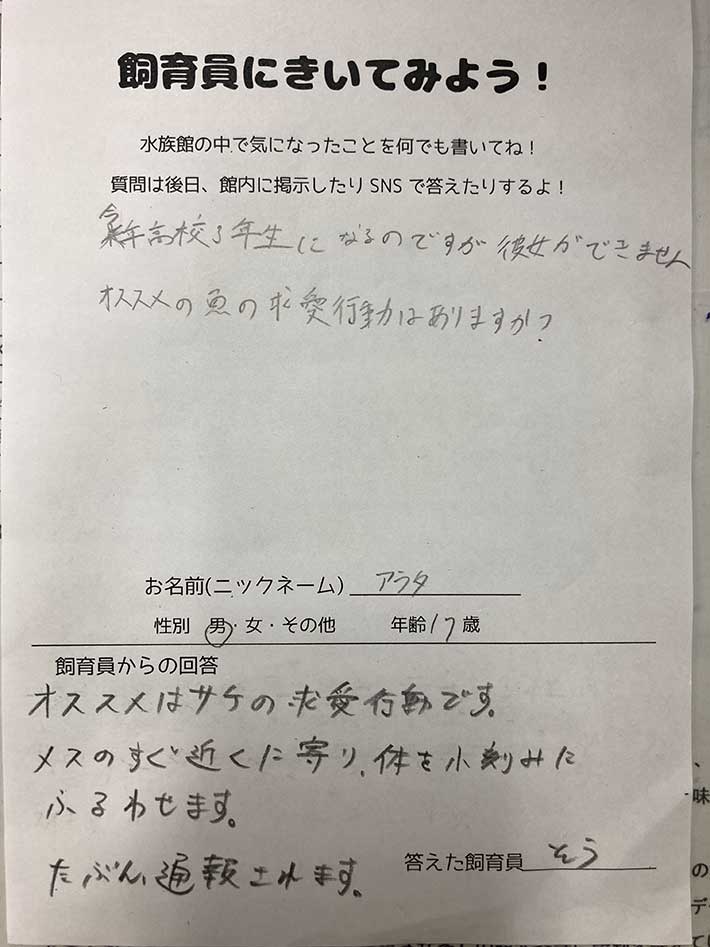 飼育員にきいてみよう！
水族館の中で気になったことを何でも書いてね！
質問は後日、館内に掲示したりSNSで答えたりするよ！
今年高校3年生になるのですが彼女ができません
オススメの魚の求愛行動はありますか？
お名前(ニックネーム) アラタ
性別 男・女・その他 年齢17歳
飼育員からの回答
オススメはサケの求愛行動です。
メスのすぐ近くに寄り、体を小刻みに
ふるわせます。
たぶん、通報されます。
答えた飼育員 そう
味
の
デ